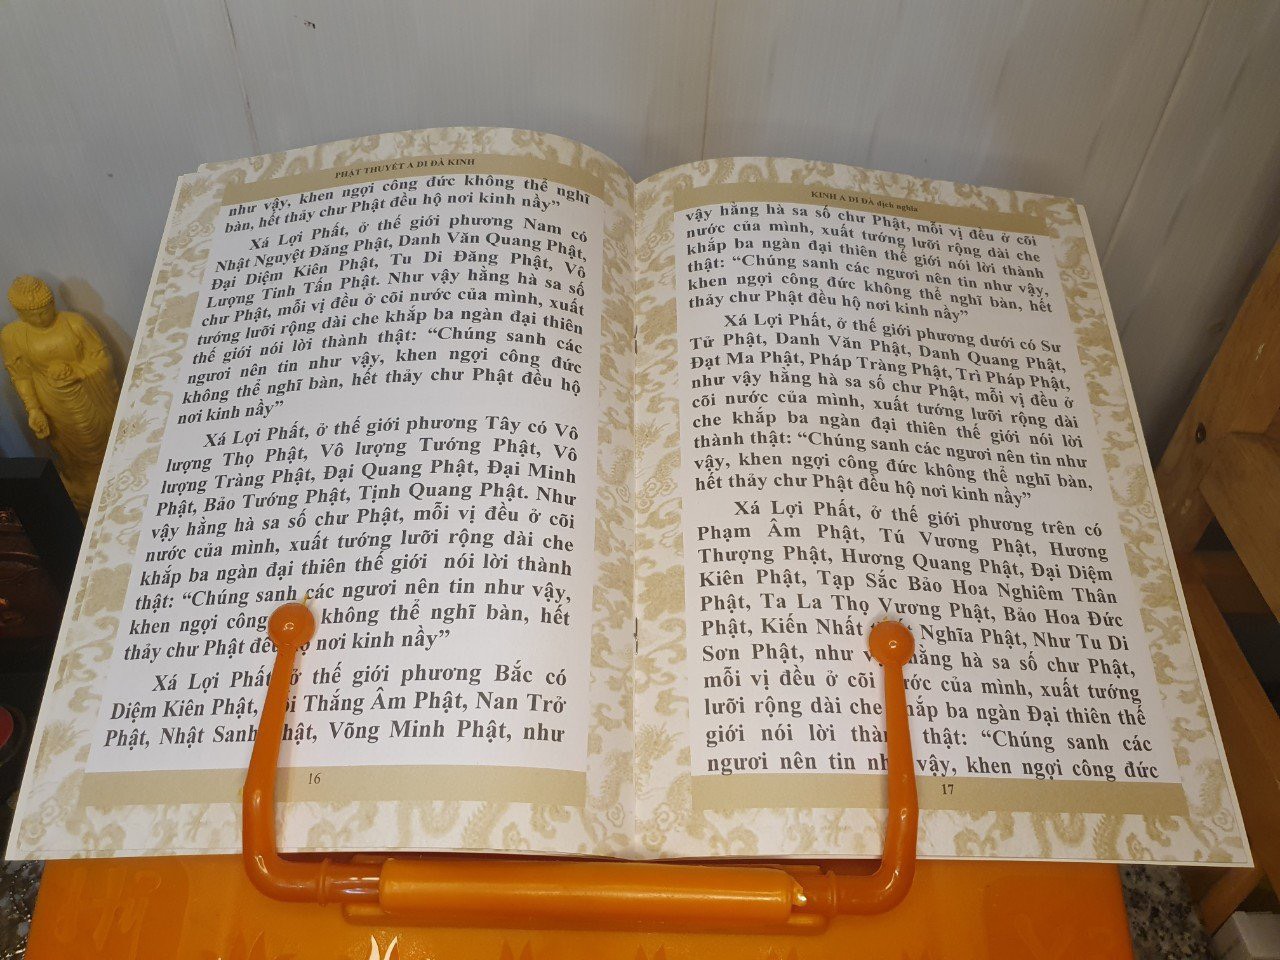 PHẬT THUYẾT A DI ĐÀ KINH
như vậy, khen ngợi công đức không thể nghĩ
bàn, hết thảy chư Phật đều hộ nơi kinh nầy”
Xá Lợi Phất, ở thế giới phương Nam có
Nhật Nguyệt Đăng Phật, Danh Văn Quang Phật,
Đại Diệm Kiên Phật, Tu Di Đăng Phật, Vô
Lượng Tinh Tấn Phật. Như vậy hằng hà sa số
chư Phật, mỗi vị đều ở cõi nước của mình, xuất
tướng lưỡi rộng dài che khắp ba ngàn đại thiên
thế giới nói lời thành thật: “Chúng sanh các
ngươi nên tin như vậy, khen ngợi công đức
không thể nghĩ bàn, hết thảy chư Phật đều hộ
nơi kinh nầy”
Xá Lợi Phất, ở thế giới phương Tây có Vô
lượng Thọ Phật, Vô lượng Tướng Phật, Vô
lượng Tràng Phật, Đại Quang Phật, Đại Minh
Phật, Bảo Tướng Phật, Tịnh Quang Phật. Như
vậy hằng hà sa số chư Phật, mỗi vị đều ở cõi
nước của mình, xuất tướng lưỡi rộng dài che
khắp ba ngàn đại thiên thế giới nói lời thành
thật: “Chúng sanh các ngươi nên tin như vậy,
khen ngợi công không thể nghĩ bàn, hết
thảy chư Phật đều hộ nơi kinh nầy”
Xá Lợi Phất, ở thế giới phương Bắc có
Diệm Kiên Phật, Thắng Âm Phật, Nan Trở
Phật, Nhật Sanh Phật, Võng Minh Phật, như
16
KINH A DI ĐÀ dịch nghĩa
vậy hằng hà sa số chư Phật, mỗi vị đều ở cõi
nước của mình, xuất tướng lưỡi rộng dài che
khắp ba ngàn đại thiên thế giới nói lời thành
thật: “Chúng sanh các ngươi nên tin như vậy,
khen ngợi công đức không thể nghĩ bàn, hết
thảy chư Phật đều hộ nơi kinh nầy”
Xá Lợi Phất, ở thế giới phương dưới có Sư
Tử Phật, Danh Văn Phật, Danh Quang Phật,
Đạt Ma Phật, Pháp Tràng Phật, Trì Pháp Phật,
như vậy hằng hà sa số chư Phật, mỗi vị đều ở
cõi nước của mình, xuất tướng lưỡi rộng dài
che khắp ba ngàn đại thiên thế giới nói lời
thành thật: “Chúng sanh các ngươi nên tin như
vậy, khen ngợi công đức không thể nghĩ bàn,
hết thảy chư Phật đều hộ nơi kinh nầy”
Xá Lợi Phất, ở thế giới phương trên có
Phạm Âm Phật, Tú Vương Phật, Hương
Thượng Phật, Hương Quang Phật, Đại Diệm
Kiên Phật, Tạp Sắc Bảo Hoa Nghiêm Thân
Phật, Ta La Thọ Vương Phật, Bảo Hoa Đức
Phật, Kiến Nhất Nghĩa Phật, Như Tu Di
Sơn Phật, như vậy hằng hà sa số chư Phật,
mỗi vị đều ở cõi nước của mình, xuất tướng
lưỡi rộng dài che khắp ba ngàn Đại thiên thế
giới nói lời thành thật: “Chúng sanh các
ngươi nên tin như vậy, khen ngợi công đức
17